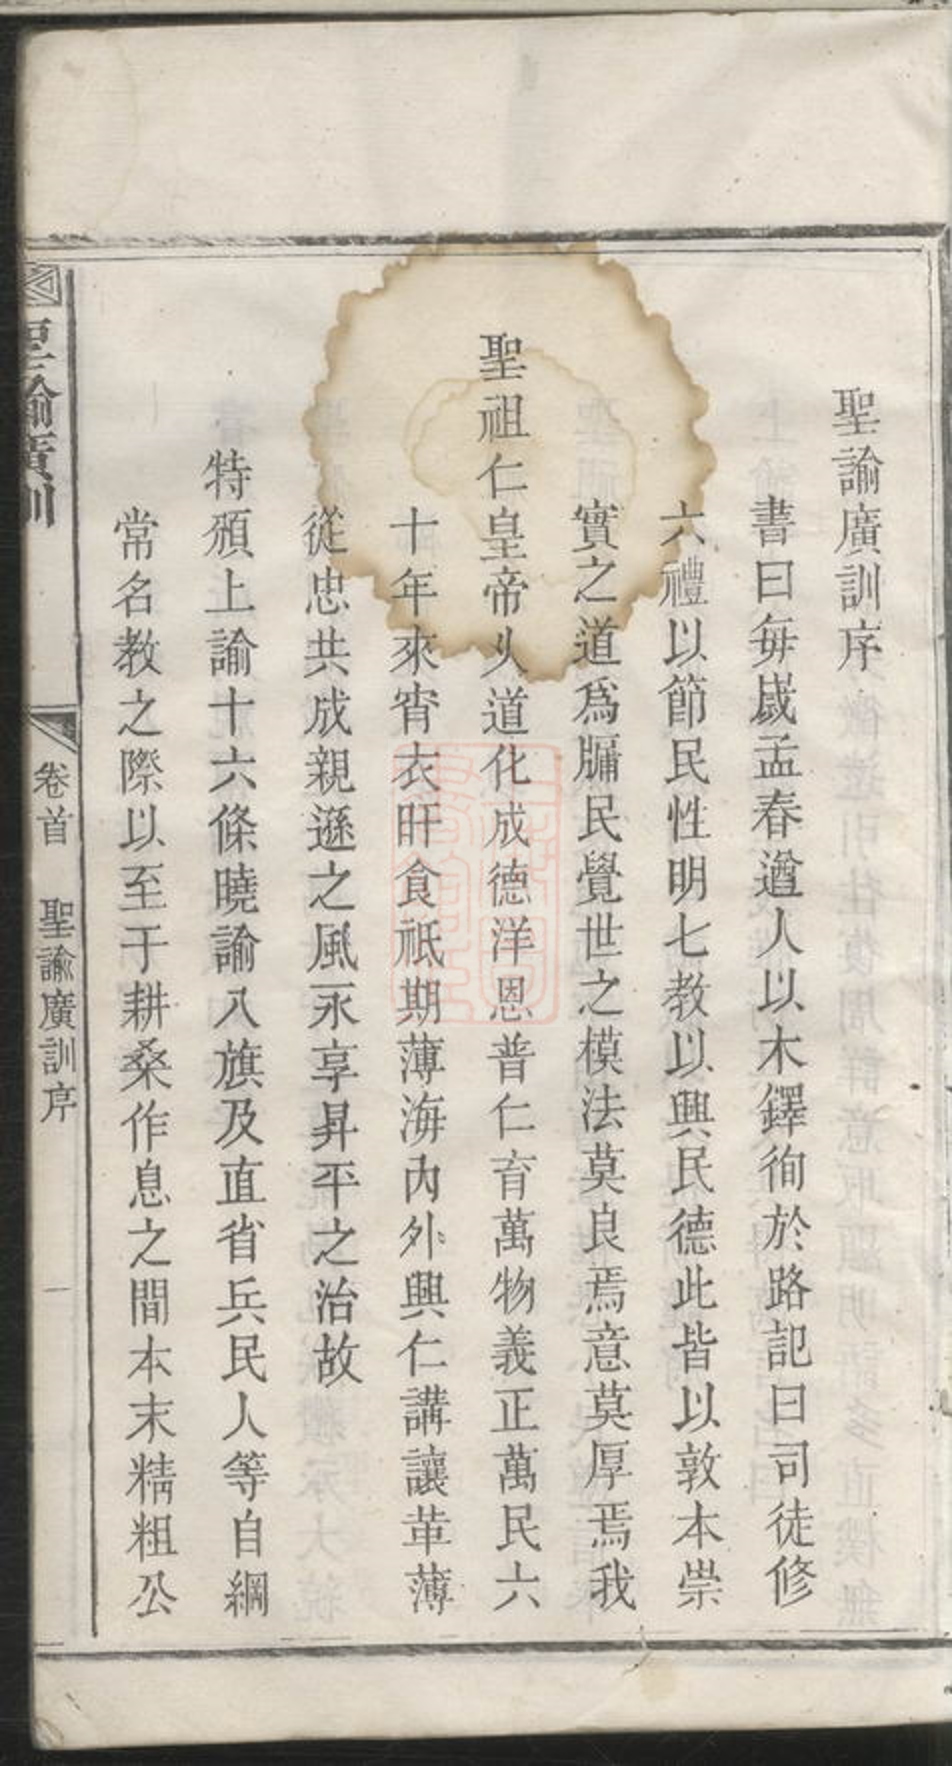 聖諭廣訓序
書曰每歲孟春遒人以木鐸徇於路記曰司徒修
六禮以節民性明七教以興民德此皆以敦本崇
實之道爲牖民覺世之模法莫良焉意莫厚焉我
聖祖仁皇帝久道化成德洋恩普仁育萬物義正萬民六
十年來宵衣旰食祇期薄海內外興仁講讓革薄
從忠共成親遜之風永享昇平之治故
特頒上諭十六條曉諭八旗及直省兵民人等自綱
常名教之際以至于耕桑作息之間本末精粗公
聖諭廣訓
卷首 聖諭廣訓序 一